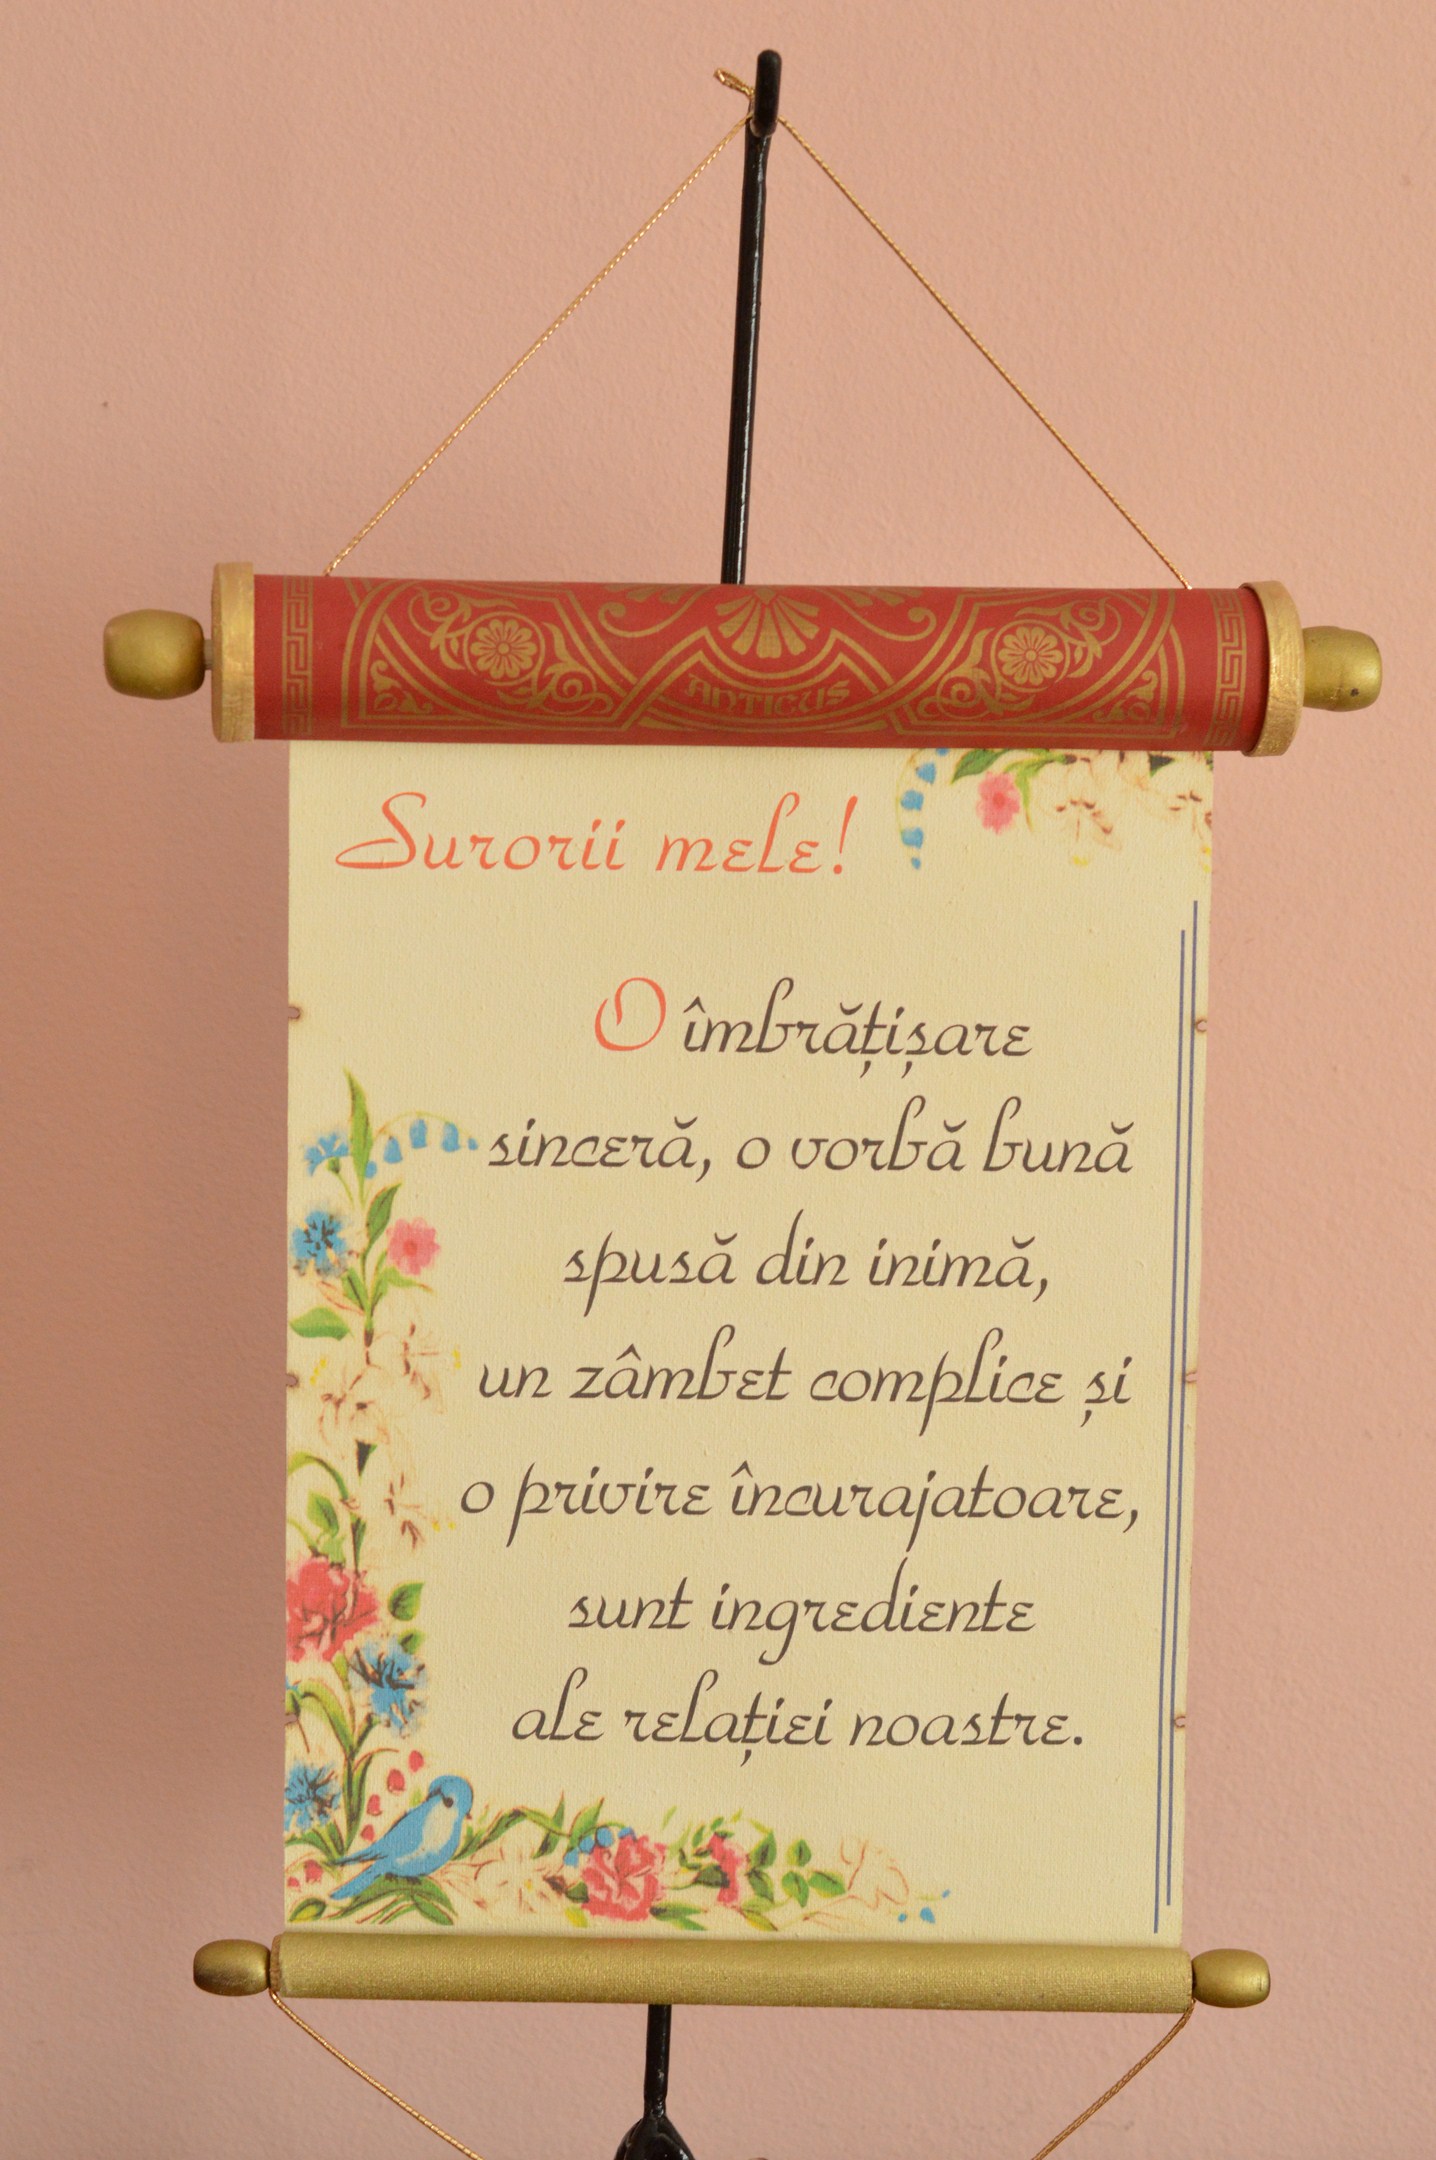 ANTICUS
Surorii mele!
O îmbrățișare
sinceră, o vorbă bună
spusă din inimă,
un zâmbet complice și
o privire încurajatoare,
sunt ingrediente
ale relației noastre.